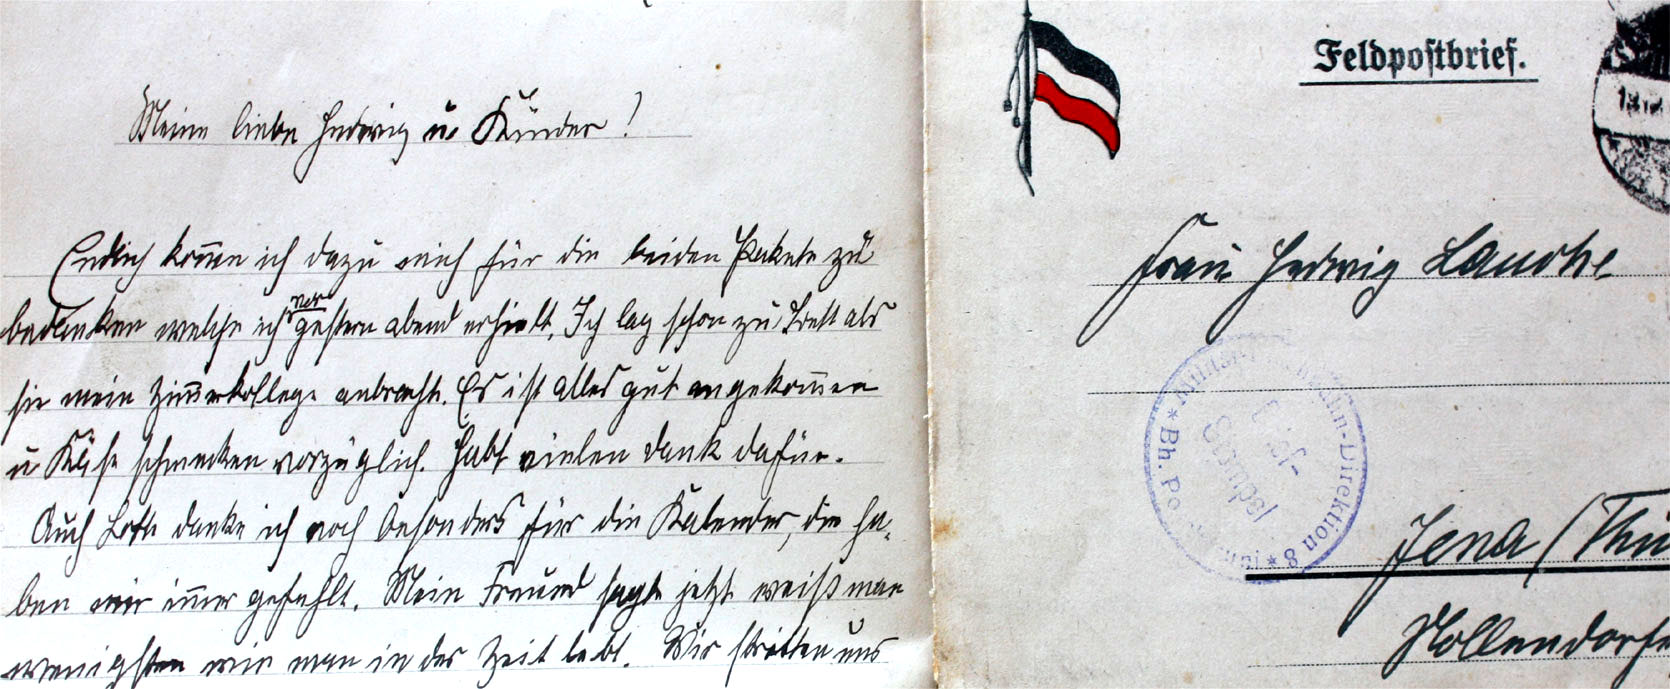 Meine liebe Hedwig u. Kinder!
Endlich kom̄en ich dazu mich für die beiden Pakete zu
bedanken welche ich vorgestern abend erhielt. Ich lag schon zu Bett als
sie mein Zim̄erkollege anbracht. Es ist alles gut angekom̄en
u Käse schmecken vorzüglich. Habt vielen Dank dafür.
Auch Lotte danke ich noch besonders für die Kalender, die ha-
ben mir im̄er gefehlt. Mein Freund sagt jetzt weiß man
wenigsten wie man in der Zeit lebt. Wir stritten uns
Feldpostbrief.
Frau Hedwig
Jena (Thü
Nollendorfe
Bh. Direktion 8